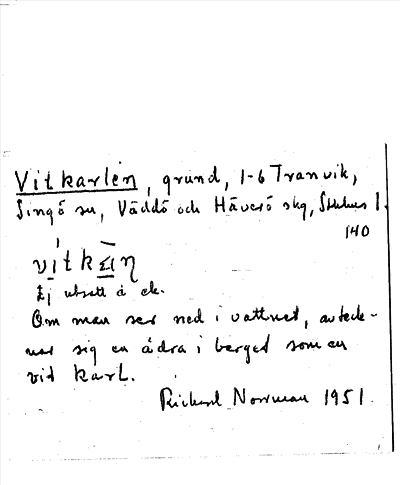 Vitkarlen, grund, 1-6 Tranvik,
Singö sn, Väddö och Häverö skg, Sthlms l.
140
Ej utsatt å ek.
Om man ser ned i vattnet, avteck-
nar sig en ådra i berget som en
vit karl.
Rickard Norrman 1951.